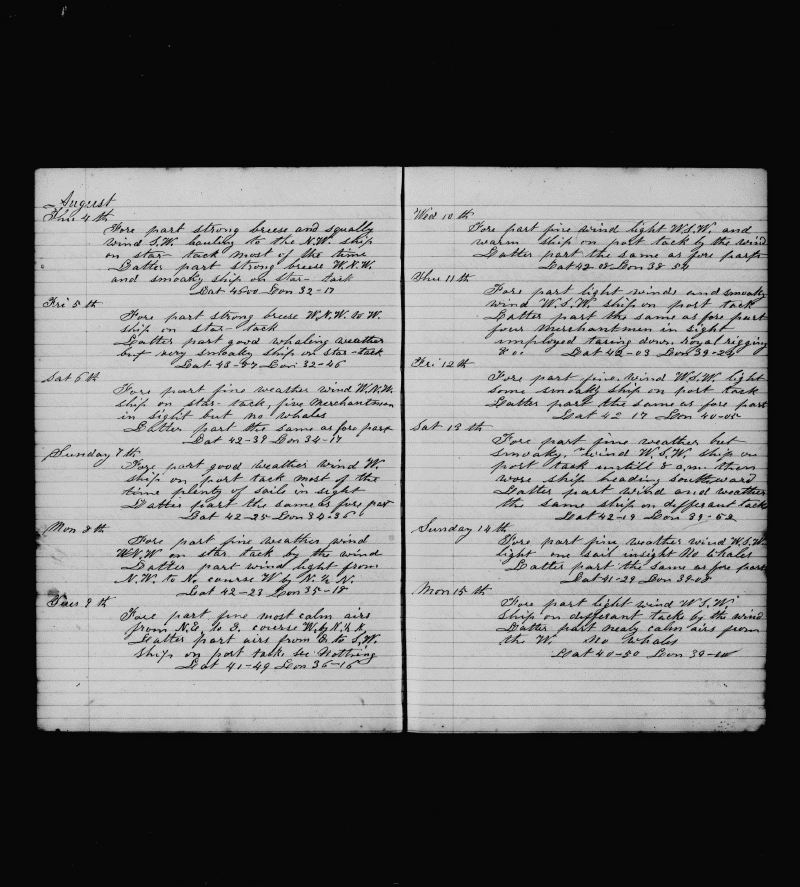 August
Thu 4 th
Fore part strong breese and squally
wind S.W. hauling to the N.W. ship
on star- tack most of the time
Latter part strong breese W.N.W.
and smoaky ship on star- tack
Lat 43-00 Lon 32-17
Fri 5 th
Fore part strong breese W.N.W. to W.
ship on star- tack
Latter part good whaling weather
but very smoaky ship on star-tack
Lat 43- Lon 32-46
Sat 6 th
Fore part fine weather wind W.N.W.
ship on star- tack, five Merchantmen
in sight but no whales
Latter part the same as fore part
Lat 42-39 Lon 34-17
Sunday 7 th
Fore part good weather wind W.
ship on port tack most of the
time plenty of sails in sight
Latter part the same as fore part
Lat 42-25 Lon 34-36
Mon 8 th
Fore part fine weather wind
W.N.W. on star tack by the wind
Latter part wind light from
N.W. to N. course W by N. & N.
Lat 42-23 Lon 35-18
Tues 9 th
Fore part fine most calm airs
from N.E. to E. course W. by N.
Latter part airs from E to S.W.
ship on port tack see Nothing
Lat 41-49 Lon 36-16
Wed 10 th
Fore part fine wind light W.S.W. and
warm ship on port tack by the wind
Latter part the same as fore part
Lat 42-08 Lon 38-24
Thu 11 th
Fore part light winds and smoaky
wind W.S.W. ship on port tack
Latter part the same as fore part
four Merchantmen in sight
imployed taring down royal rigging
Lat 42-03 Lon 39-29
Fri 12 th
Fore part fine, wind W.S.W. light
some smoaky ship on port tack
Latter part the same as fore part
Lat 42 17 Lon 40-05
Sat 13 th
Fore part fine weather but
smoaky. wind W.S.W. ship on
port tack untill 8 a.m. then
wore ship heading southward
Latter part wind and weather
the same ship on differant tack
Lat 42-19 Lon 39-52
Sunday 14 th
Fore part fine weather wind W.S.W.
light one sail insight No Whales
Latter part the same as fore part
Lat 41-29 Lon 39-08
Mon 15 th
Fore part light wind W.S.W.
ship on differant tacks by the wind
Latter part near calm airs from
the W. No Whales
Lat 40-50 Lon 39-10